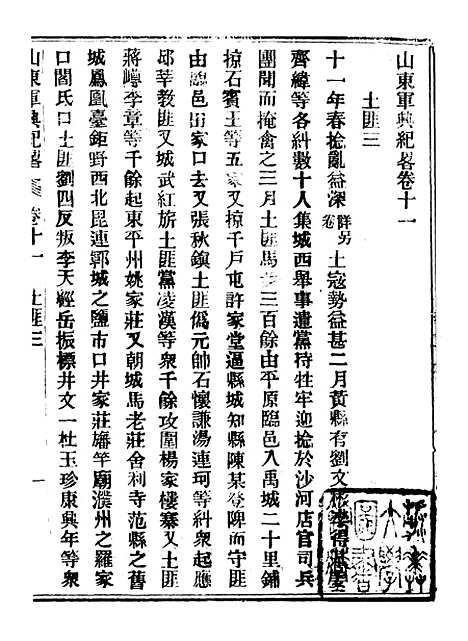 山東軍興紀畧卷十一
土匪三
十一年春捻亂益深詳另卷土寇勢益甚二月黃縣有劉文
齊緯等各糾數十人集城西舉事遣黨持牲牢迎捻於沙河店官司兵
團聞而掩禽之三月土匪馬步三百餘由平原臨邑入禹城二十里鋪
掠石賓王等五家又掠千戶屯許家堂逼縣城知縣陳某登陴而守匪
由臨邑田家口去又張秋鎮土匪僞元帥石懷謙湯連珂等糾衆起應
邱莘教匪又城武紅旂土匪黨凌漢等衆千餘攻圍楊家樓寨又土匪
蔣嶟李章等千餘起東平州姚家莊又朝城馬老莊舍利寺范縣之舊
城鳳凰臺鉅野西北毘連鄆城之鹽市口井家莊旛竿廟濮州之羅家
口閻氏口土匪劉四反叛李天經岳振標井文一杜玉珍康興年等衆
山東軍興紀畧 卷十一 土匪三 一